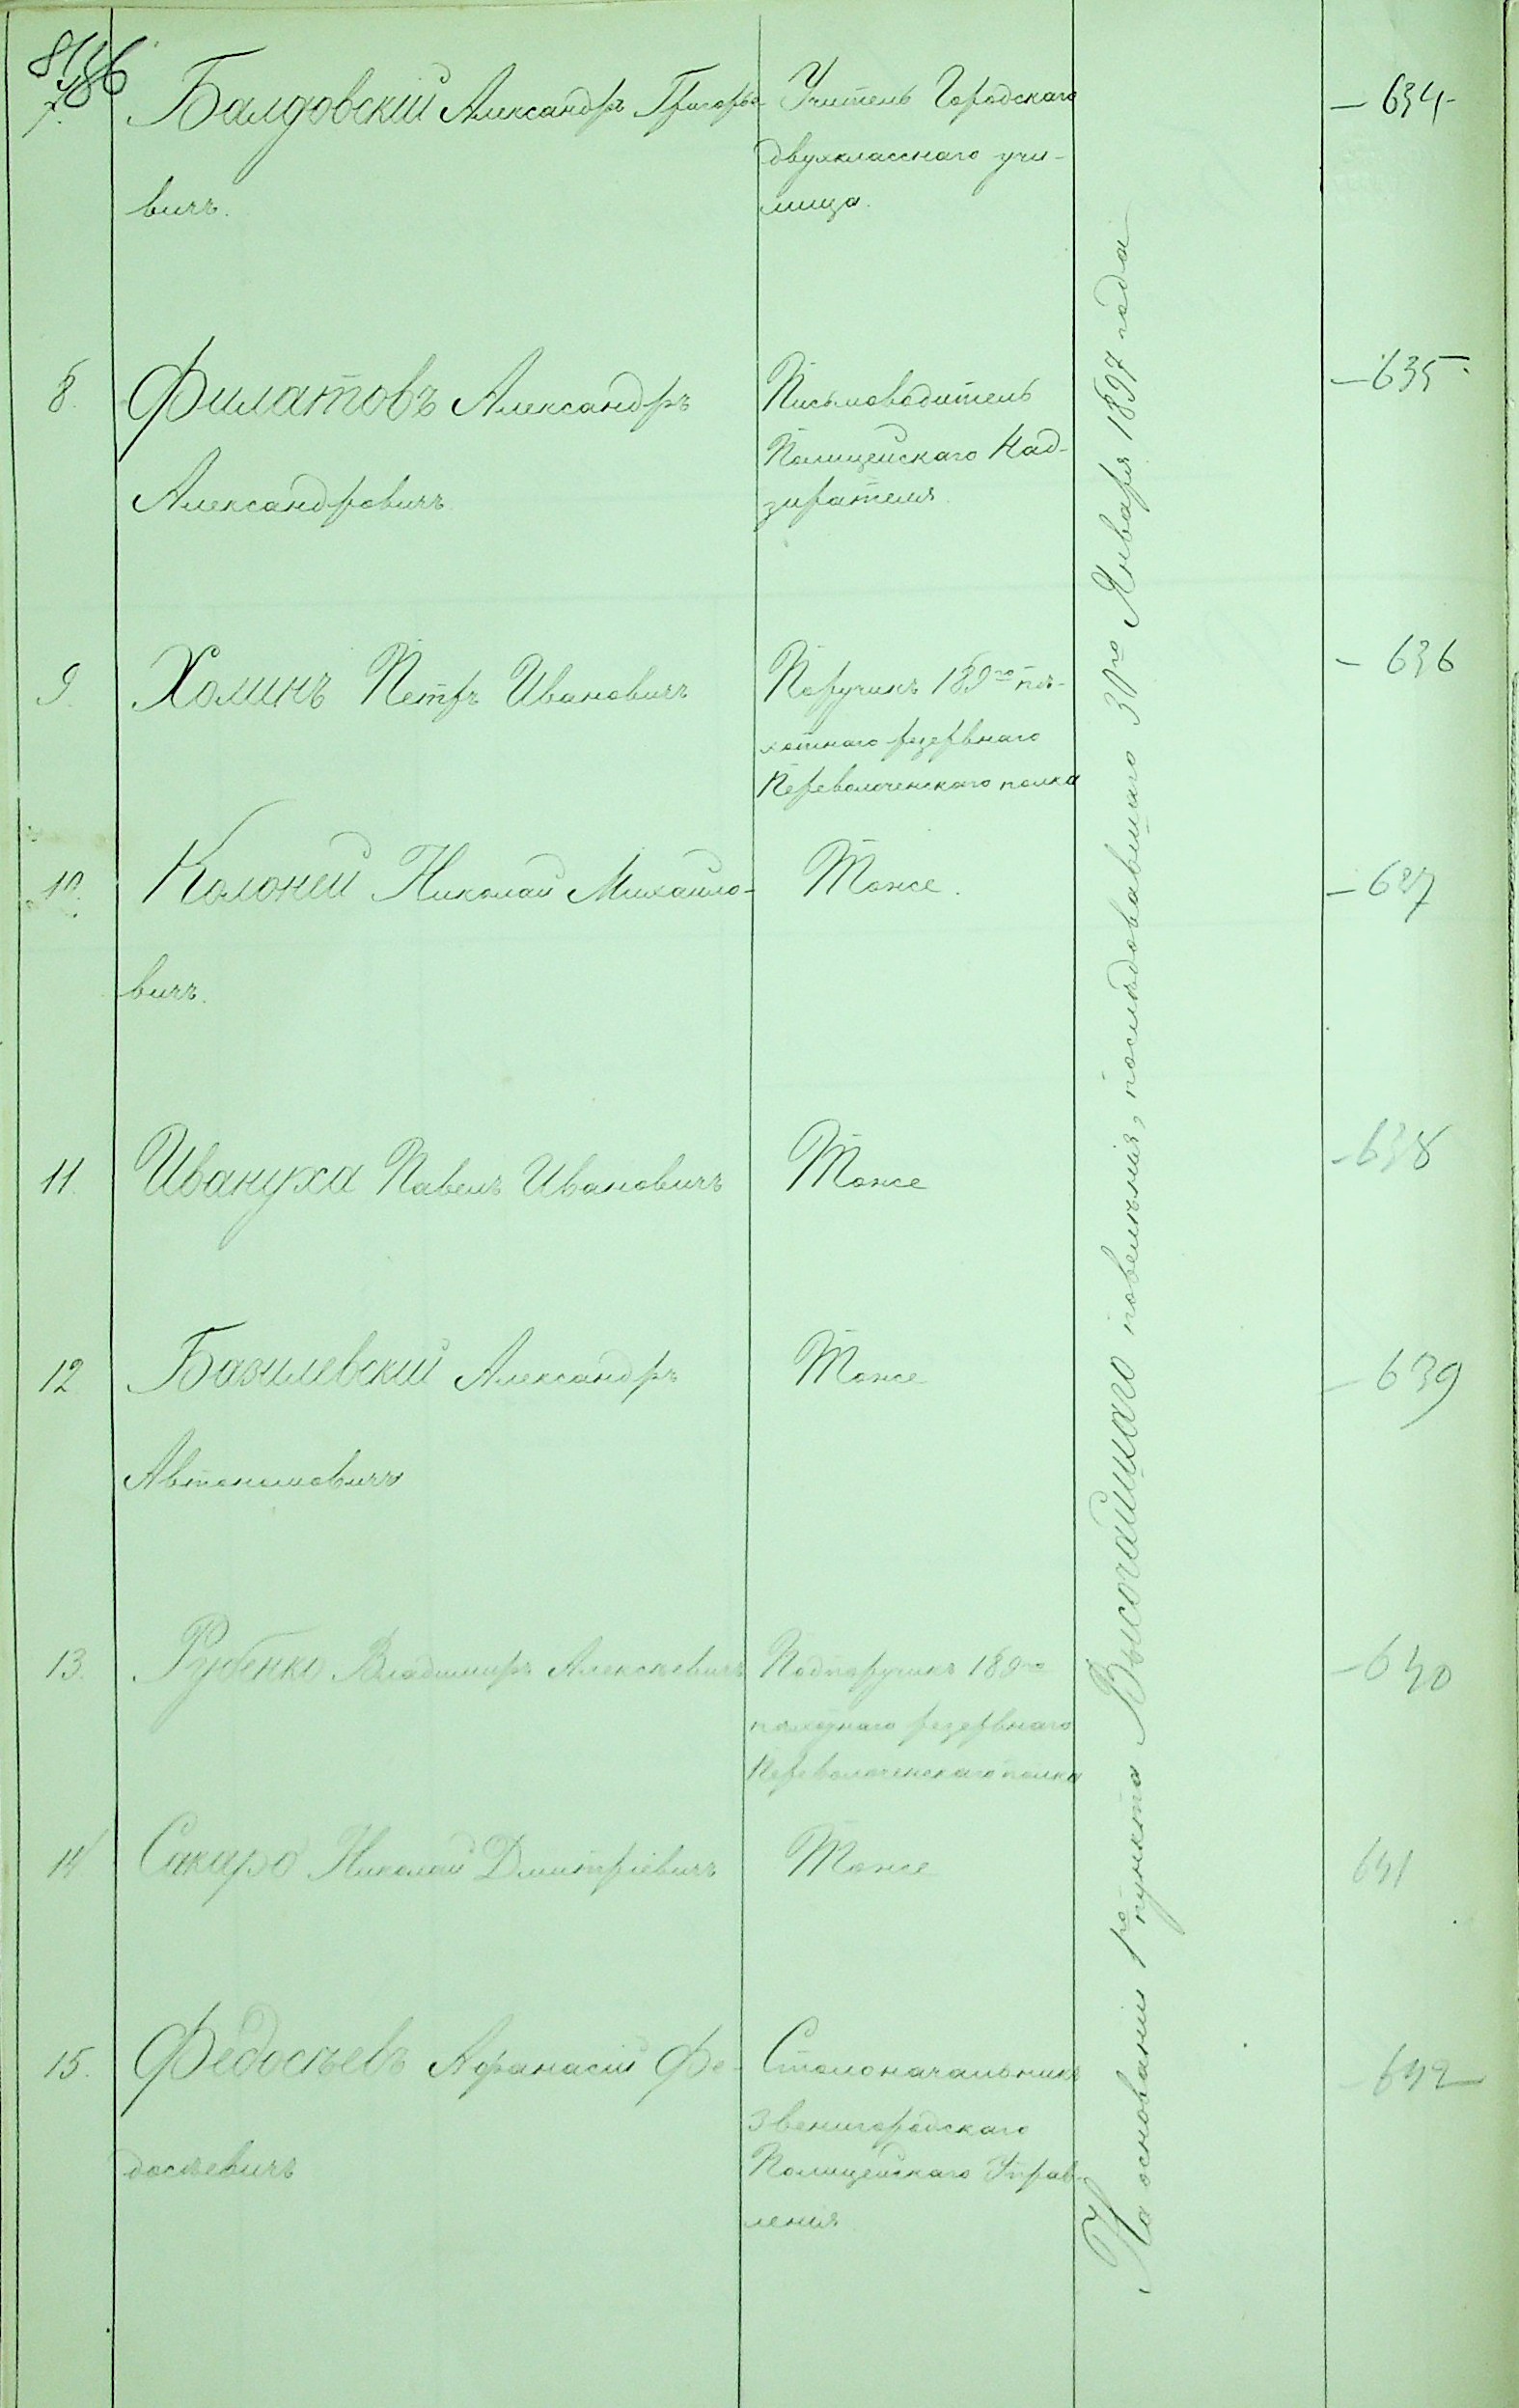 7. Балдовскій Александръ Григорье- Учитель Городскаго — 634
двухкласснаго учи-
вичъ. лища.
8. Филатовъ Александръ Письмоводитель — 635
Полицейскаго Над-
Александровичъ зирателя.
9. Холинъ Петръ Ивановичъ Поручикъ 189го пѣ- — 636
хотнаго резервнаго
Переволоченскаго полка
10. Колоней Николай Михайло- Тоже. — 637
вичъ.
11. Ивануха Павелъ Ивановичъ Тоже — 638
12 Базилевскій Александръ Тоже — 639
Автономовичъ
13. Рубенко Владиміръ Алексѣевичъ Подпоручикъ 189го — 640
пѣхотнаго резервнаго
Переволоченскаго полка
14 Сакаро Николай Дмитріевичъ Тоже 641
15. Федосѣевъ Афанасій Фе- Столоначальникъ — 642
Звенигородскаго
досѣевичъ Полицейскаго Управ-
ленія
На основаніи го пункта Высочайшаго повелѣнія, послѣдовавшаго 30го Января 1897 года